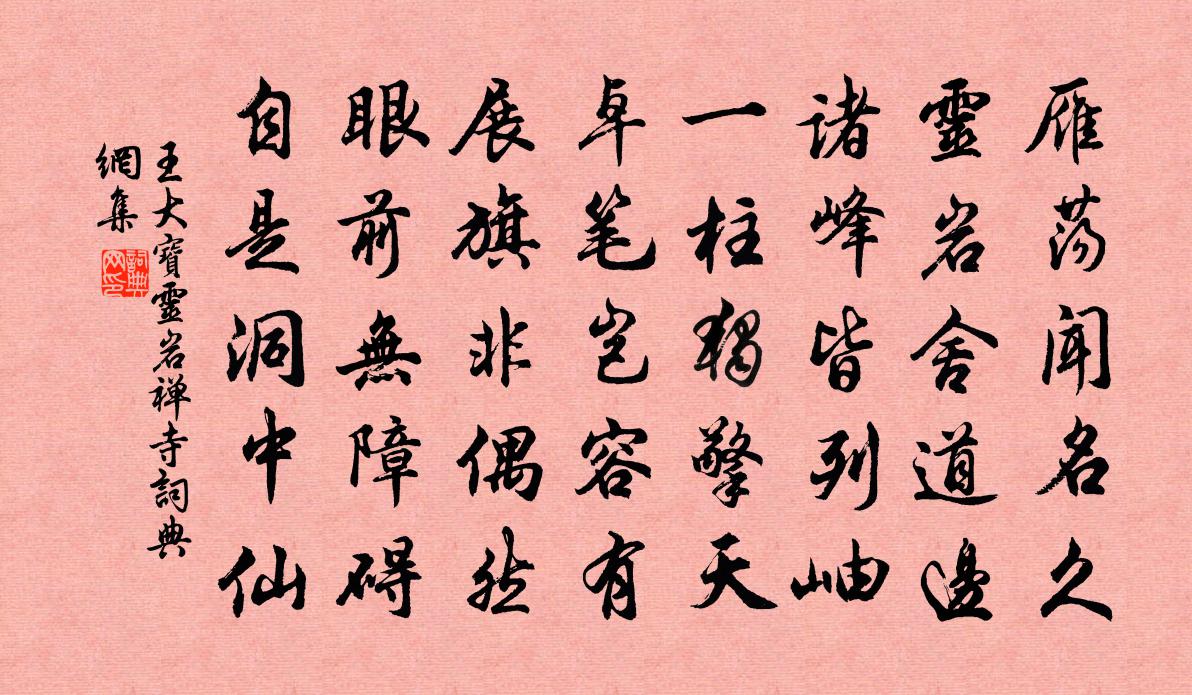 雁荡闻名久
靈岩舍道邊
诸峰皆列岫
一柱独擎天
卓笔岂容有
展旗非偶然
眼前無障碍
自是洞中仙
王大寶靈岩禅寺詞典
網集
詞典網印